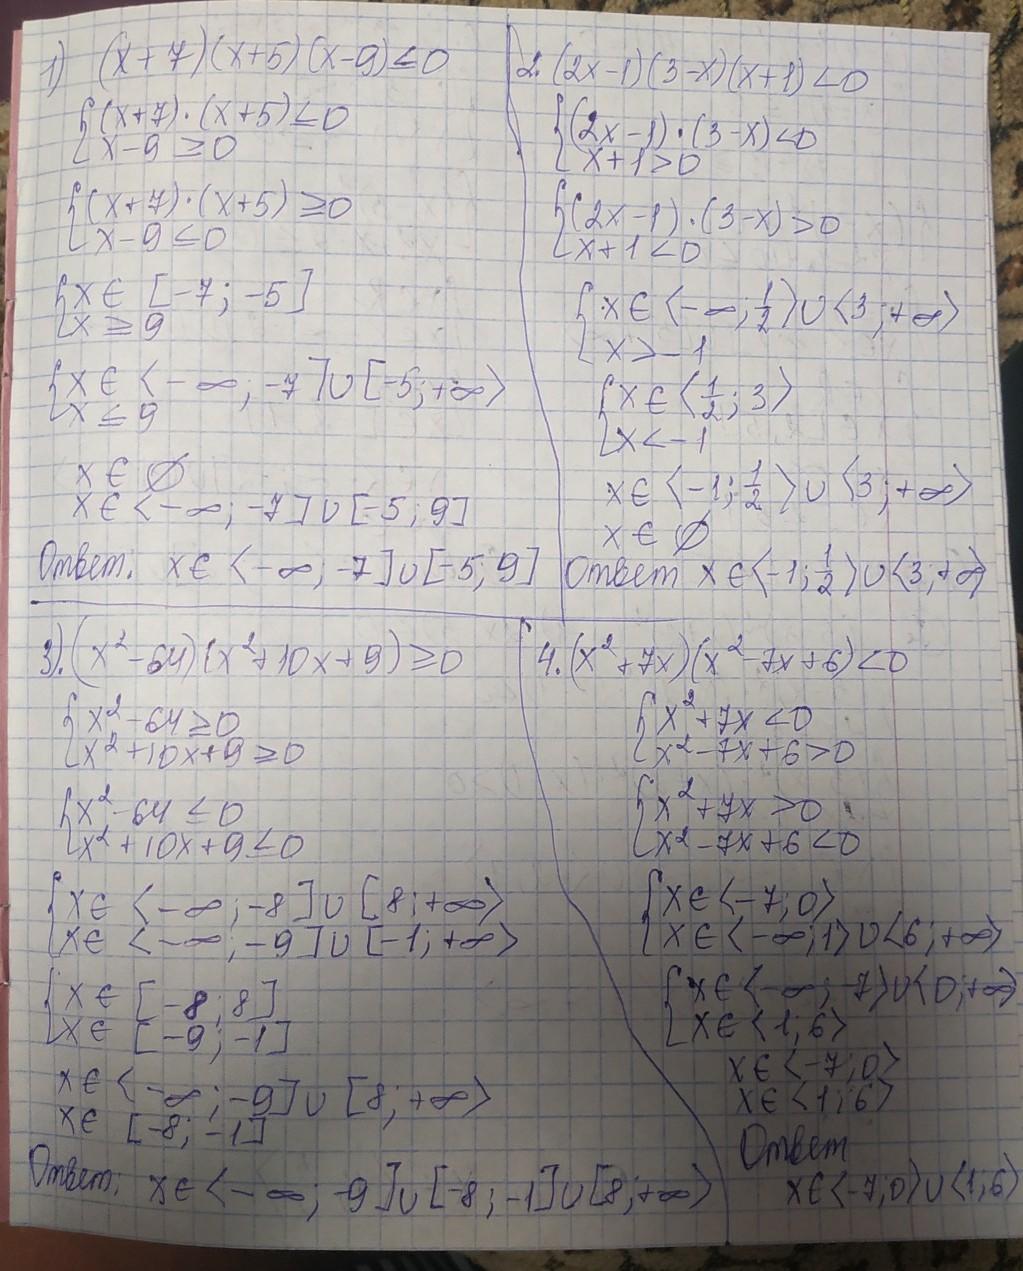 1) (x+7)(x+5)(x-9)≤0
{(x+7)·(x+5)≤0
x-9≥0
{(x+7)·(x+5)≥0
x-9≤0
{x∈ [-7; -5]
x≥9
{x∈ <-∞; -7]∪[-5;+∞>
x≤9
x∈ ∅
x∈<-∞; -7]∪[-5; 9]
Ответ: x∈ <-∞; -7]∪[-5; 9]
2. (2x-1)(3-x)(x+1)<0
{(2x-1)·(3-x)<0
x+1>0
{(2x-1)·(3-x)>0
x+1<0
{x∈<-∞; 1/2>∪<3;+∞>
x>-1
{x∈<1/2; 3>
x<-1
x∈<-1; 1/2>∪<3;+∞>
x∈ ∅
Ответ x∈<-1; 1/2>∪<3;+∞>
3). (x²-64)(x²+10x+9)≥0
{x²-64≥0
x²+10x+9≥0
{x²-64≤0
x²+10x+9≤0
{x∈ <-∞; -8]∪[8;+∞>
x∈ <-∞; -9]∪[-1;+∞>
{x∈ [-8; 8]
x∈ [-9; -1]
x∈<-∞; -9]∪[8;+∞>
x∈ [-8; -1]
Ответ: x∈<-∞; -9]∪[-8; -1]∪[8;+∞>
4. (x²+7x)(x²-7x+6)<0
{x²+7x<0
x²-7x+6>0
{x²+7x>0
x²-7x+6<0
{x∈<-7; 0>
x∈<-∞; 1>∪<6;+∞>
{x∈<-∞; -7>∪<0;+∞>
x∈<1; 6>
x∈<-7; 0>
x∈<1; 6>
Ответ
x∈<-7; 0>∪<1; 6>